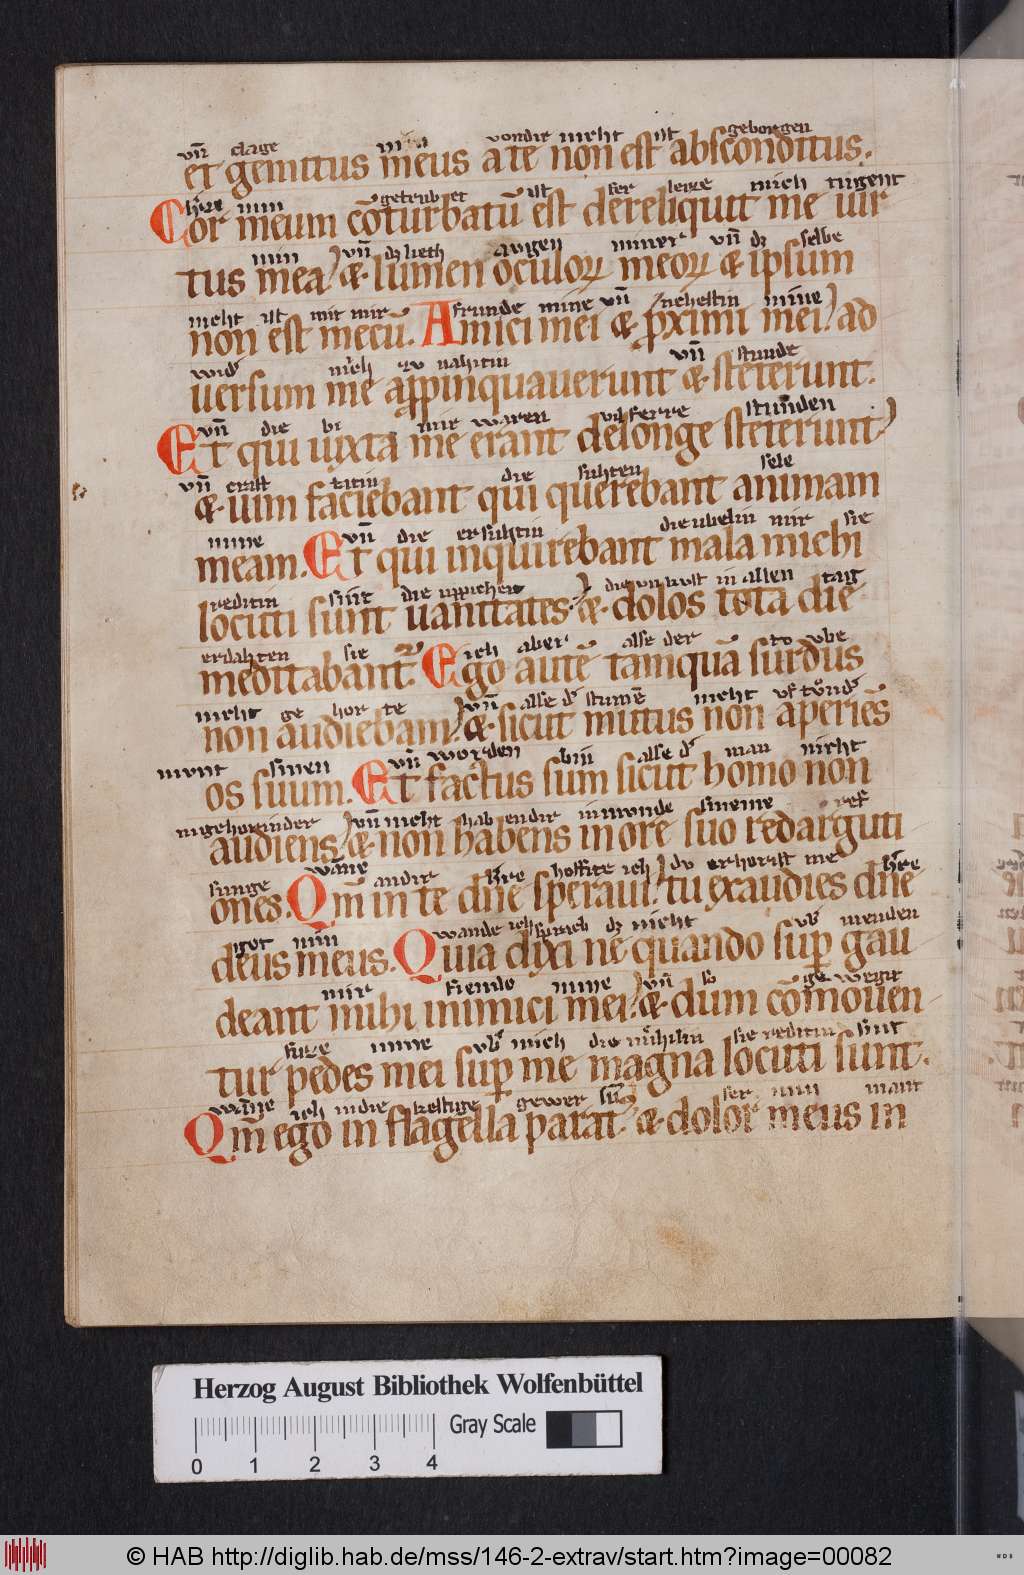 vn̄ clage min vondir nieht ist geborgen
et gemitus meus a te non est absconditus.
min getrubet ist ser leize mich tugent
Cor meum cōturbatū est dereliquit me uir
min vn̄ dz lieth augen miner vn̄ dz selbe
tus mea & lumen oculoꝝ meoꝝ & ipsum
nieht ist mit mir frunde mine vn̄ nehestin mine
non est mecū. Amici mei & ꝓximi mei ad
wid mich zv nahitin vn̄ stunde
uersum me appinquauerunt & steterunt.
vn̄ die bi mir waren vil ferre stunden
Et qui iuxta me erant de longe steterunt
vn̄ crist titin die suhten sele
& uim faciebant qui querebant animam
mine vn̄ die ersuhtin die ubelin mir sie
meam. Et qui inquirebant mala michi
reditin sint die uppicheit in allen tag
locuti sunt uanitates & dolos tota die
erdahten sie ich aber alse der tovbe
meditabant. Ego autē tamquā surdus
nieht ge hor te vn̄ alse d stume nieht
non audiebam & sicut mutus non aperiēs
munt sinen vn̄ worden bin alse d man nieht
os suum. Et factus sum sicut homo non
vn̄ nieht hab endir munde sineme
audiens & non habens in ore suo redarguti
wane andir hre hoffite ich du erhorist me hre
ones. Qm̄ in te dn̄e speraui tu exaudies dn̄e
got min wande ich dz nieht menden
deus meus. Quia dixi ne quando suꝑ gau
mir fiende mine vn̄ so ge wegit
deant mihi inimici mei & dum cōmouen
fuze mine vb mich die sie reditin sint
tur pedes mei suꝑ me magna locuti sunt.
wāne ich indie gewer ser min
Qm̄ ego in flagella parat & dolor meus in
Herzog August Bibliothek Wolfenbüttel
Gray Scale
0 1 2 3 4
© HAB http://diglib.hab.de/mss/146-2-extrav/start.htm?image=00082